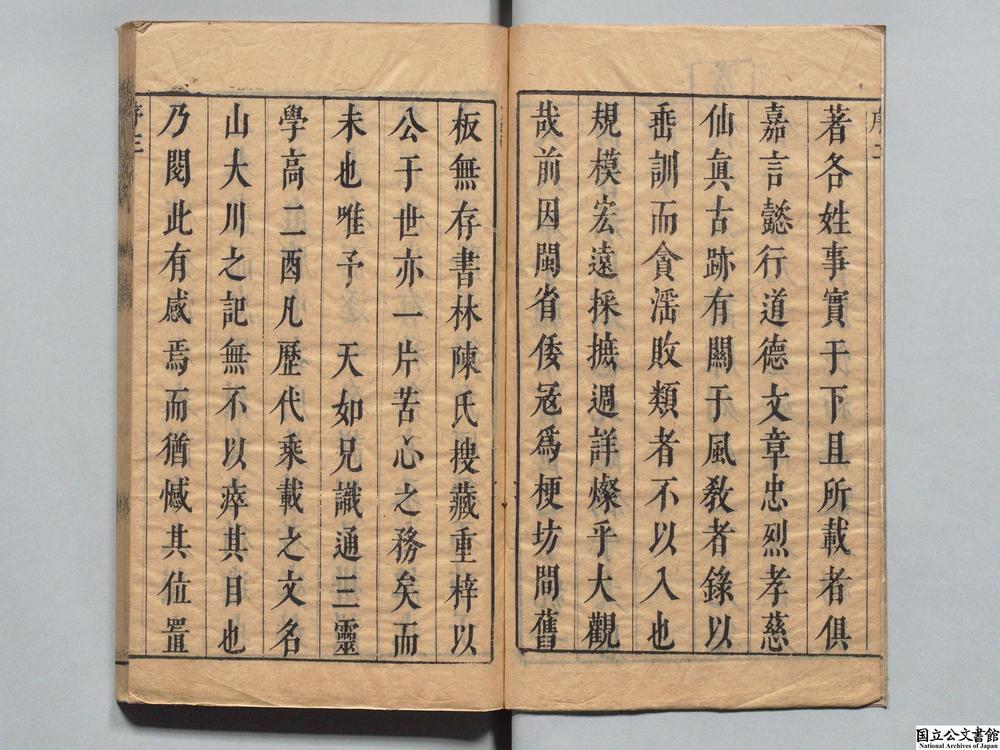 著各姓事實于下且所載者俱
嘉言懿行道德文章忠烈孝慈
仙眞古跡有關于風敎者錄以
垂訓而貪淫敗類者不以入也
規模宏遠採摭週詳燦乎大觀
哉前因閩省倭冦爲梗坊間舊
板無存書林陳氏搜藏重梓以
公于世亦一片苦心之務矣而
未也唯予 天如兄識通三靈
學高二酉凡歷代乘載之文名
山大川之記無不以瘁其目也
乃閱此有感焉而猶憾其位置
国立公文書館
National Archives of Japan